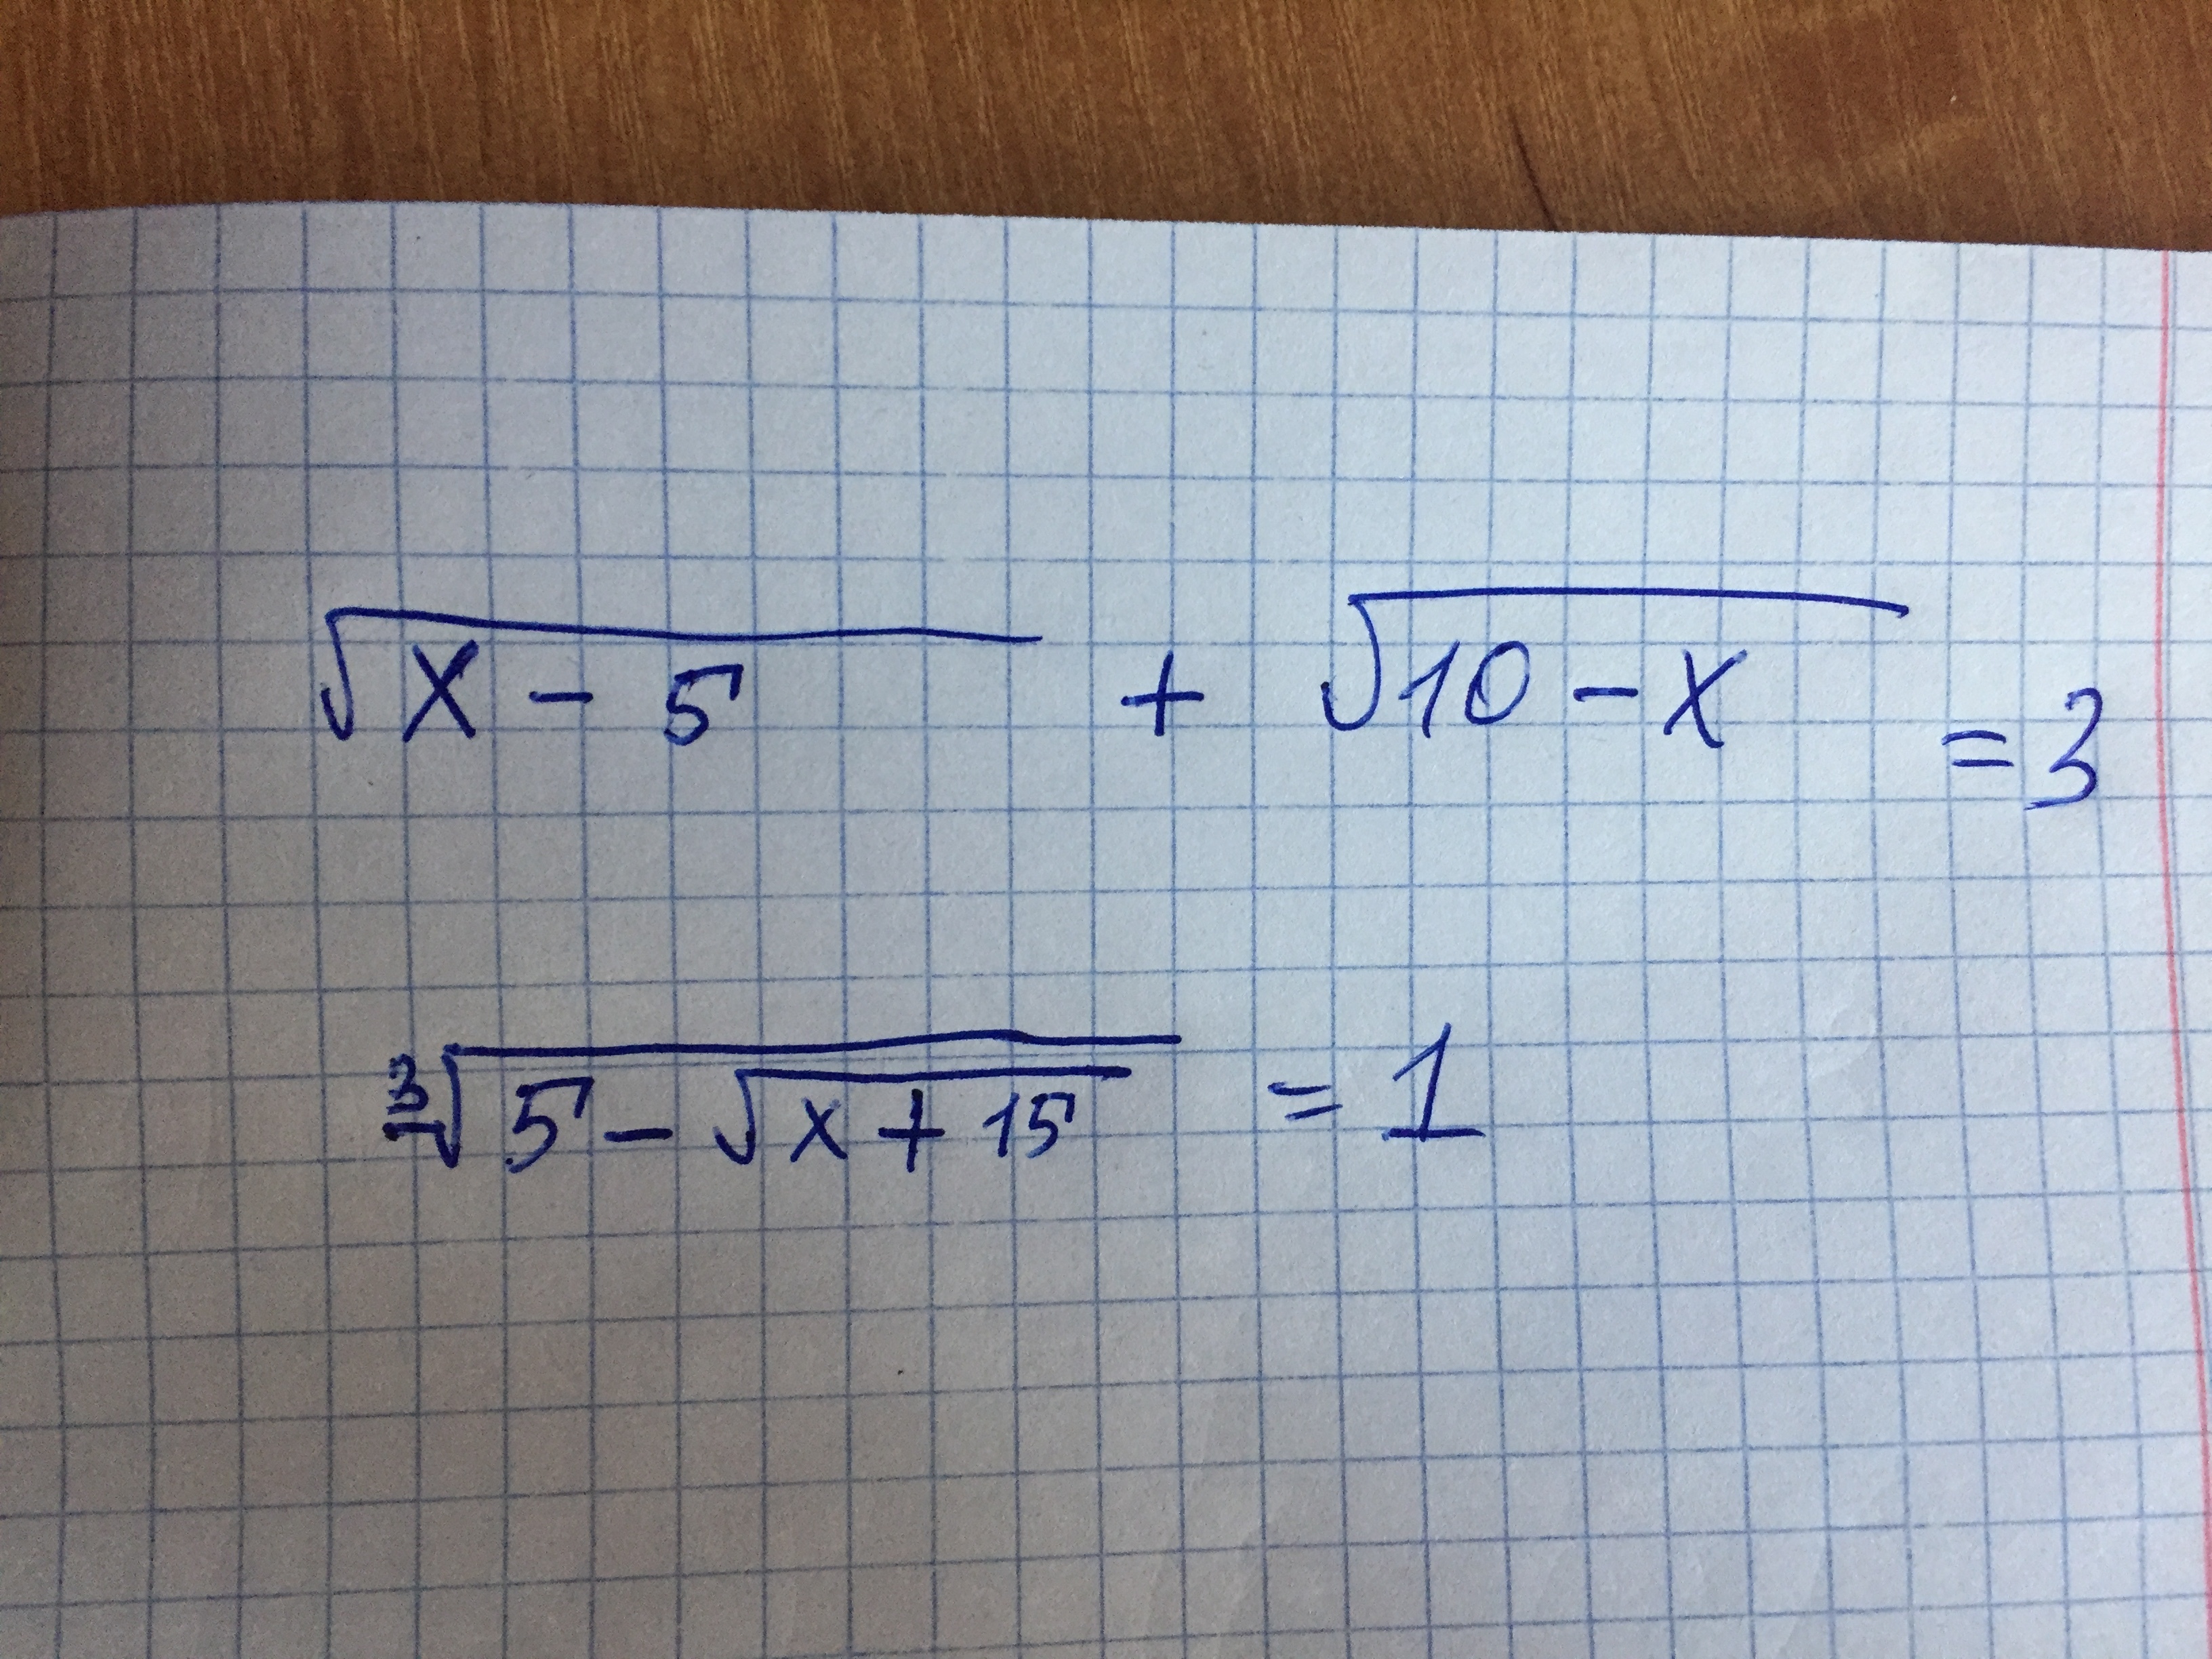 √(x - 5) + √(10 - x) = 3
∛(5 - √(x + 15)) = 1